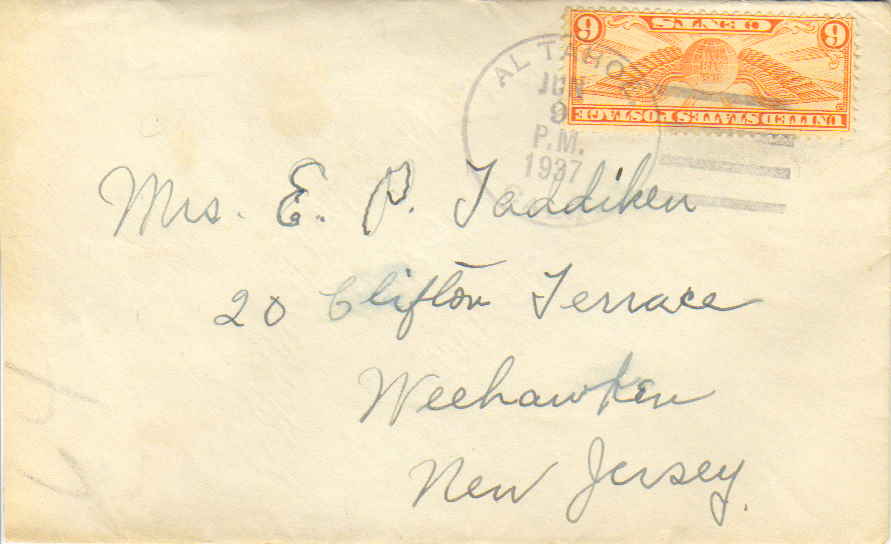 6 CENTS 6
UNITED STATES POSTAGE
AL TAHOE
JUN
9
P.M.
1937
Mrs. E. P. Taddiken
20 Clifton Terrace
Weehawken
New Jersey.